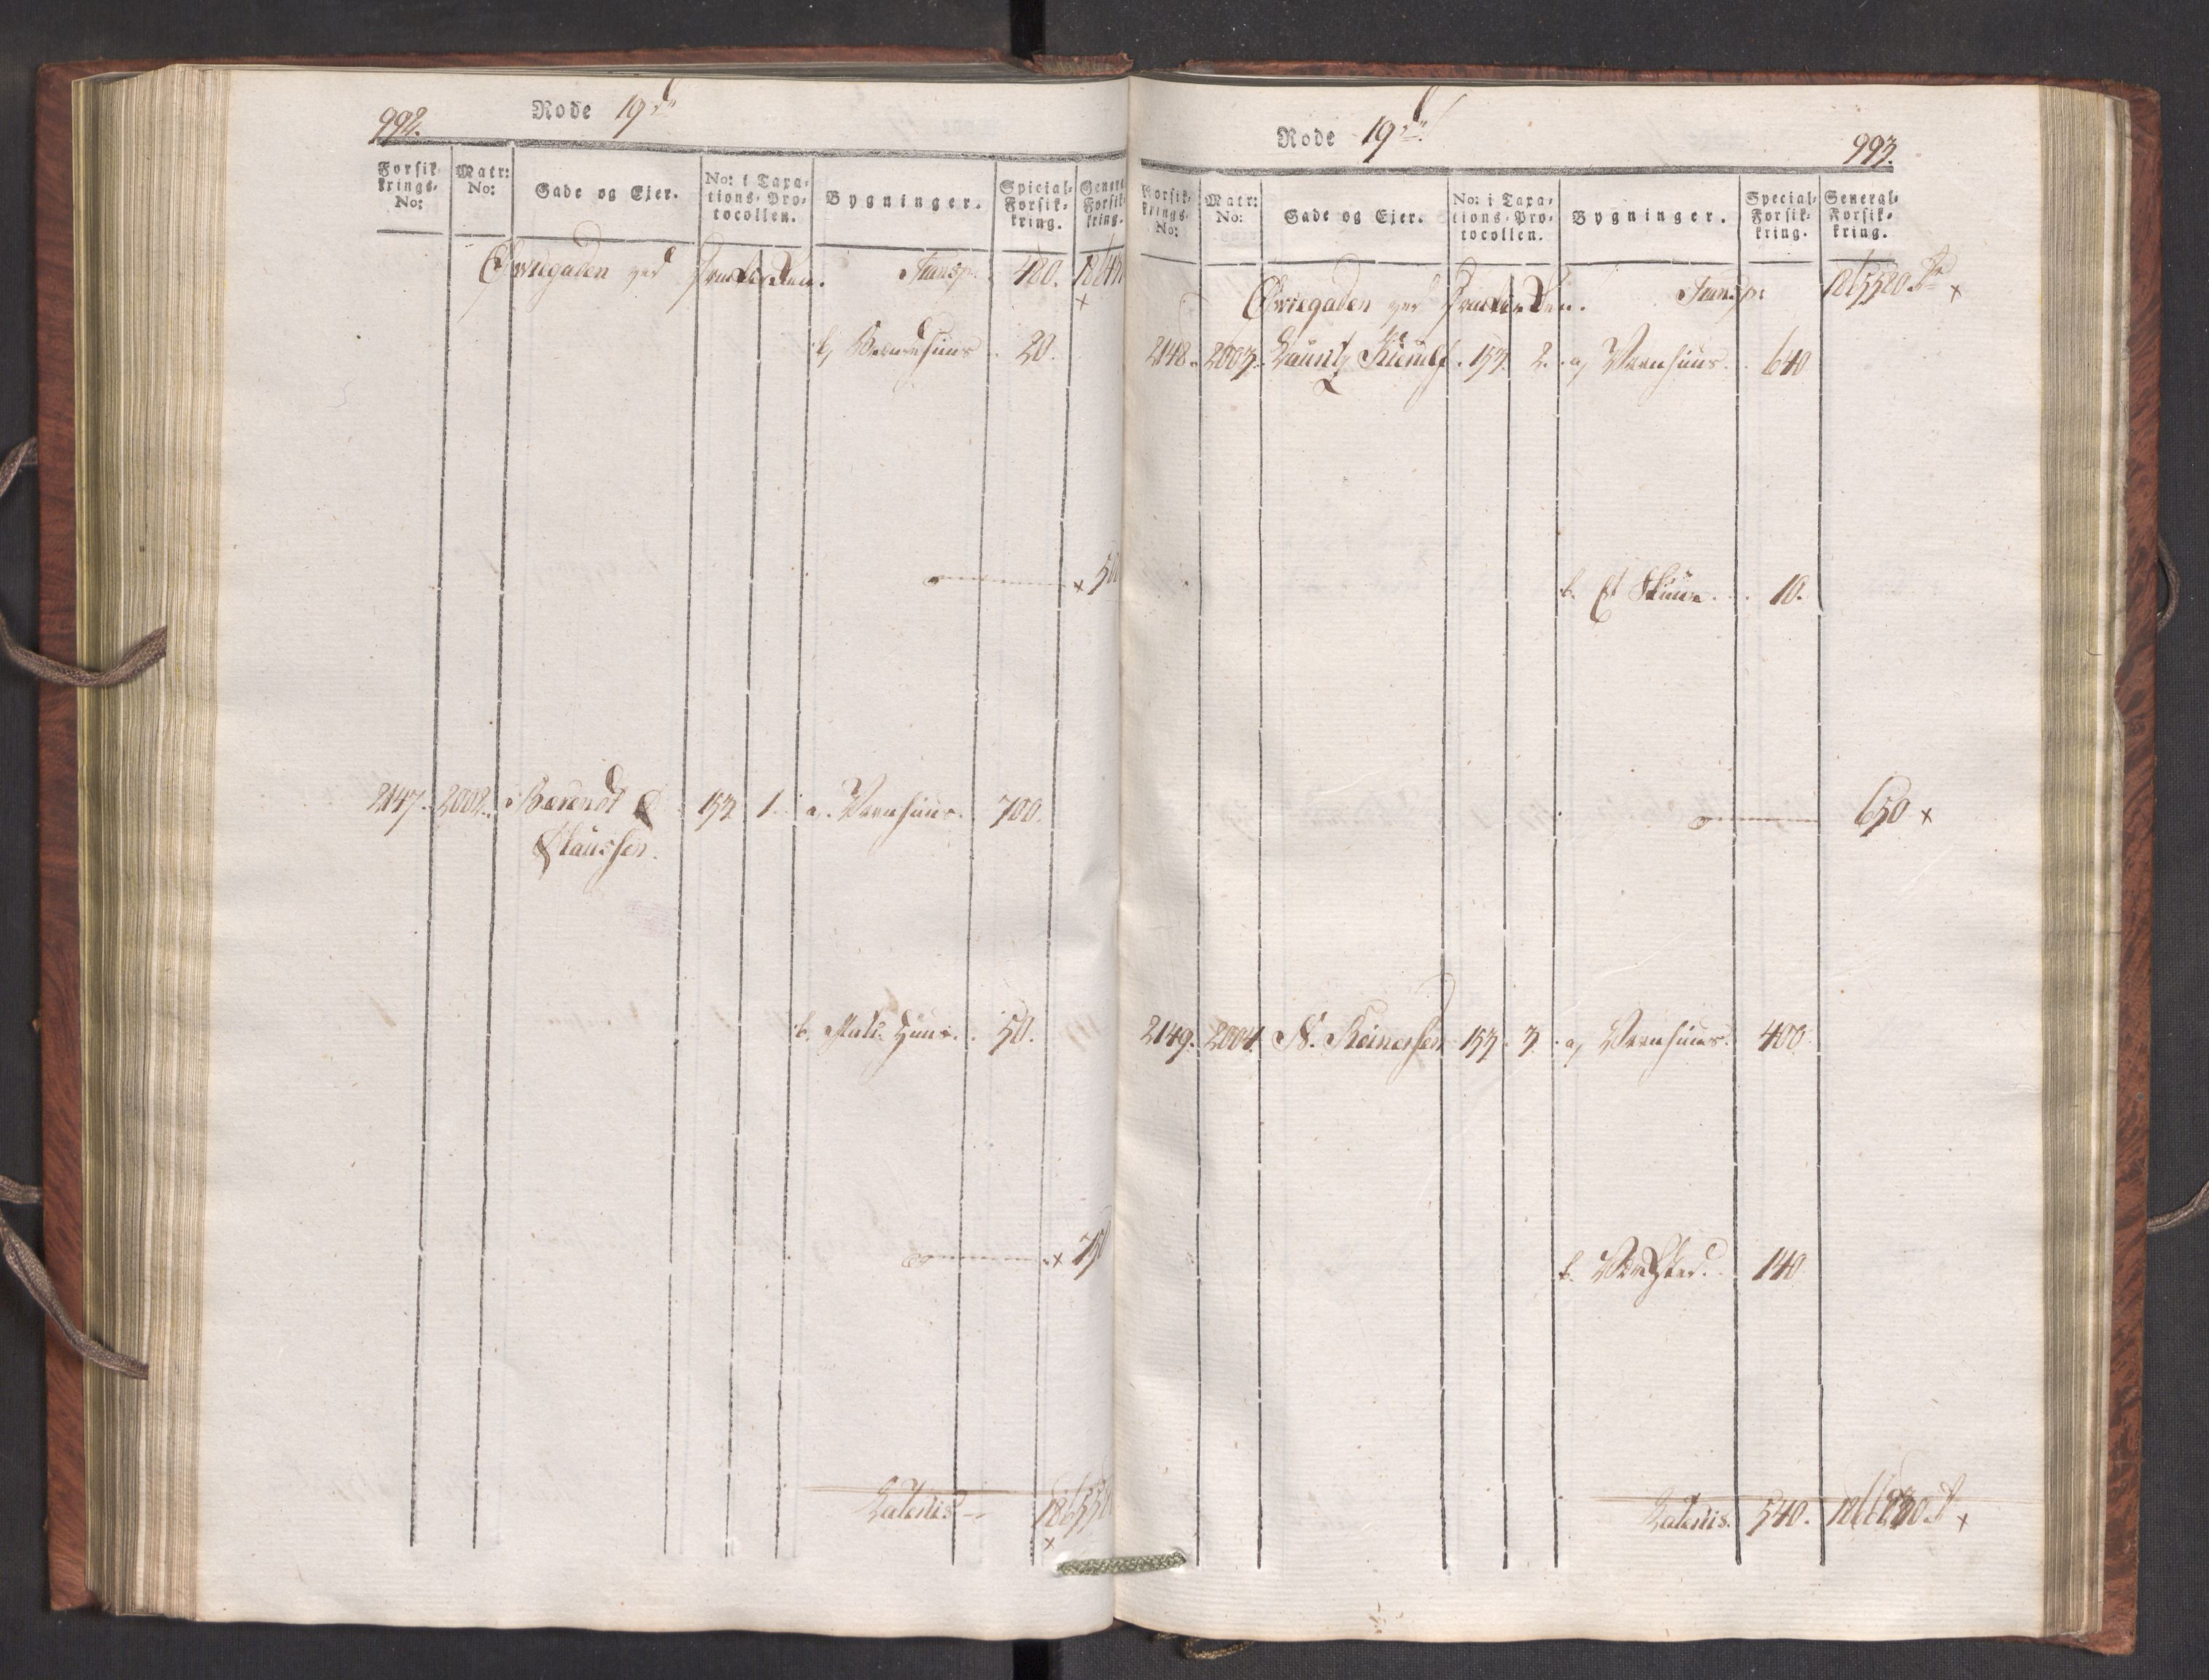 992.
Rode 19de
Forsik-
krings-
No:
Matr:
No:
Gade og Eier.
No: i Taxa-
tions-Pro-
tocollen.
Bygninger.
Special-
Forsik-
kring.
Forsik-
kring.
Øvregaden ved Transp: 480.
b, 20.
2147. 2002. Barendt 153 1. a. Vaanhuus. 700.
Claussen.
b. Huus. 50.
× 750
Lateris
Rode 19de
993.
Forsik-
krings-
No:
Matr:
No:
Gade og Eier.
No: i Taxa-
tions-Pro-
tocollen.
Bygninger.
Special-
Forsik-
kring.
General-
Forsik-
kring.
Øvregaden ved Transp: ×
2148. 2003. 153. 2. a, Vaanhuus. 640
b. Et Skuur. 10.
650 ×
2149. 2004. N. Reimersen 153. 3. a, Vaanhuus. 400.
b. 140.
Lateris. 540. ×